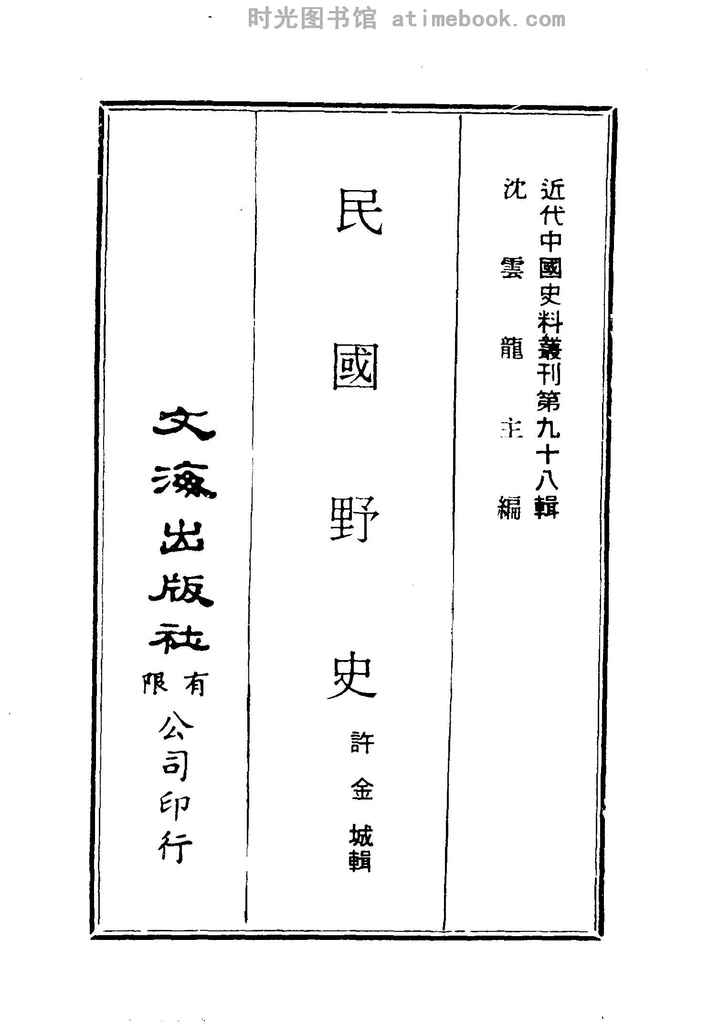 时光图书馆 atimebook.com
近代中國史料叢刊第九十八輯
沈雲龍主編
民國野史
許金城輯
文海出版社
有限
公司印行